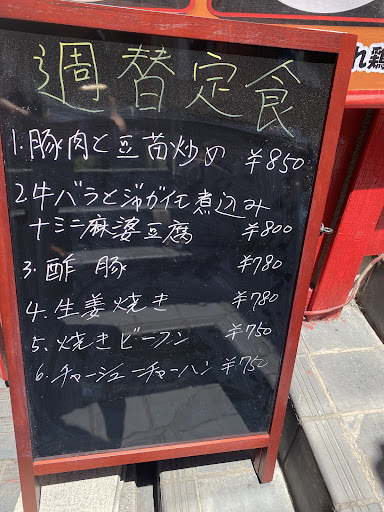 れ鶏
週替定食
1.豚肉と豆苗炒め ¥850
2.牛バラとジャガイモ煮込み
+ミニ麻婆豆腐 ¥800
3.酢豚 ¥780
4.生姜焼き ¥780
5.焼きビーフン ¥750
6.チャーシューチャーハン ¥750